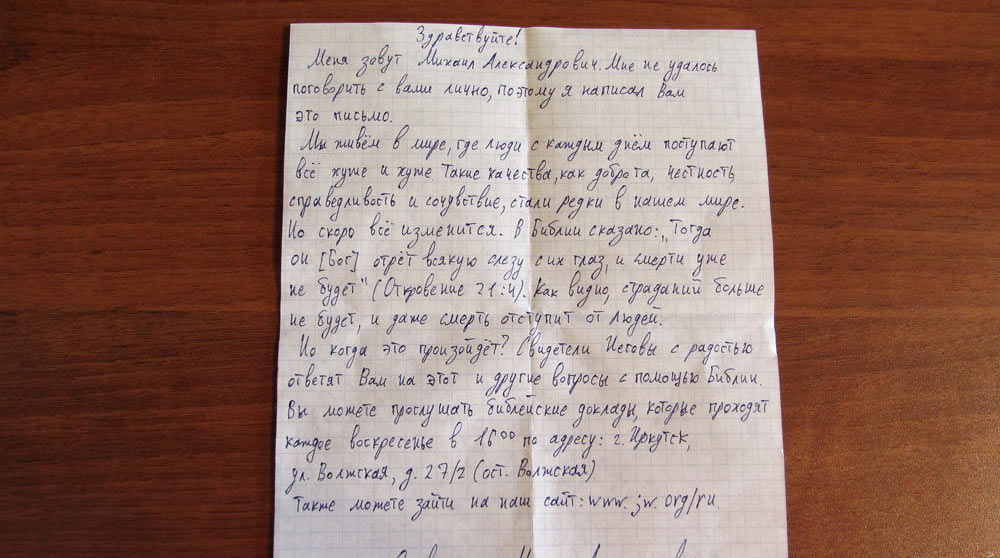 Здравствуйте!
Меня зовут Михаил Александрович. Мне не удалось
поговорить с вами лично, поэтому я написал Вам
это письмо.
Мы живём в мире, где люди с каждым днём поступают
всё хуже и хуже Такие качества, как доброта, честность,
справедливость и сочувствие, стали редки в нашем мире.
Но скоро всё изменится. В Библии сказано: „Тогда
он [Бог] отрёт всякую слезу с их глаз, и смерти уже
не будет" (Откровение 21:4). Как видно, страданий больше
не будет, и даже смерть отступит от людей.
Но когда это произойдёт? Свидетели Иеговы с радостью
ответят Вам на этот и другие вопросы с помощью Библии.
Вы можете прослушать библейские доклады, которые проходят
каждое воскресенье в 16⁰⁰ по адресу: г. Иркутск,
ул. Волжская, д. 27/2 (ост. Волжская)
Также можете зайти на наш сайт: www.jw.org/ru.